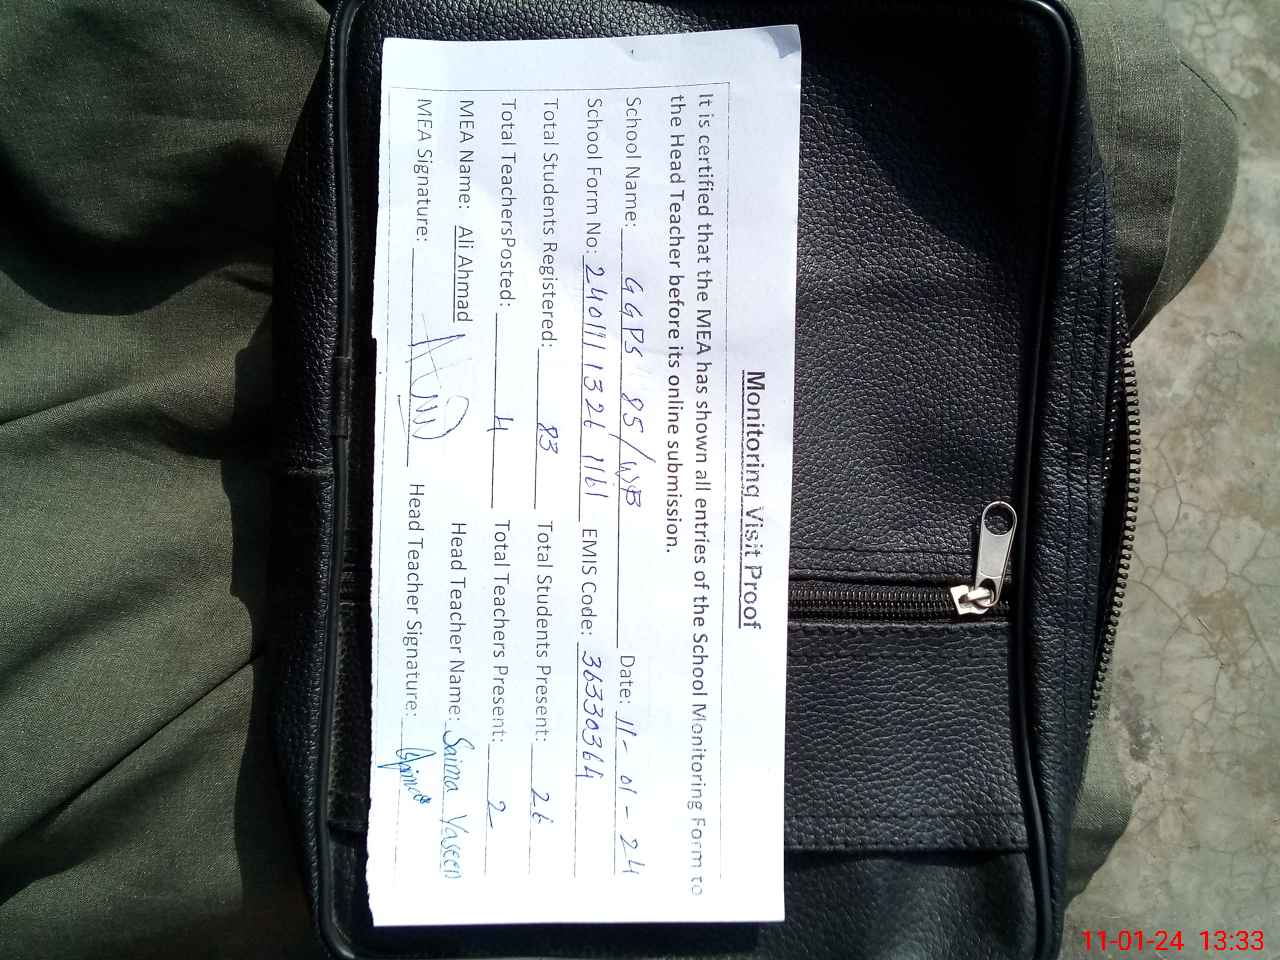 Monitoring Visit Proof
It is certified that the MEA has shown all entries of the School Monitoring Form to
the Head Teacher before its online submission.
School Name: GGPS 85/WB Date: 11-01-24
School Form No: 240111326 1161 EMIS Code: 36330364
Total Students Registered: 83 Total Students Present: 26
Total TeachersPosted: 4 Total Teachers Present: 2
MEA Name: Ali Ahmad Head Teacher Name: Saima Yaseen
MEA Signature: Head Teacher Signature:
11-01-24 13:33